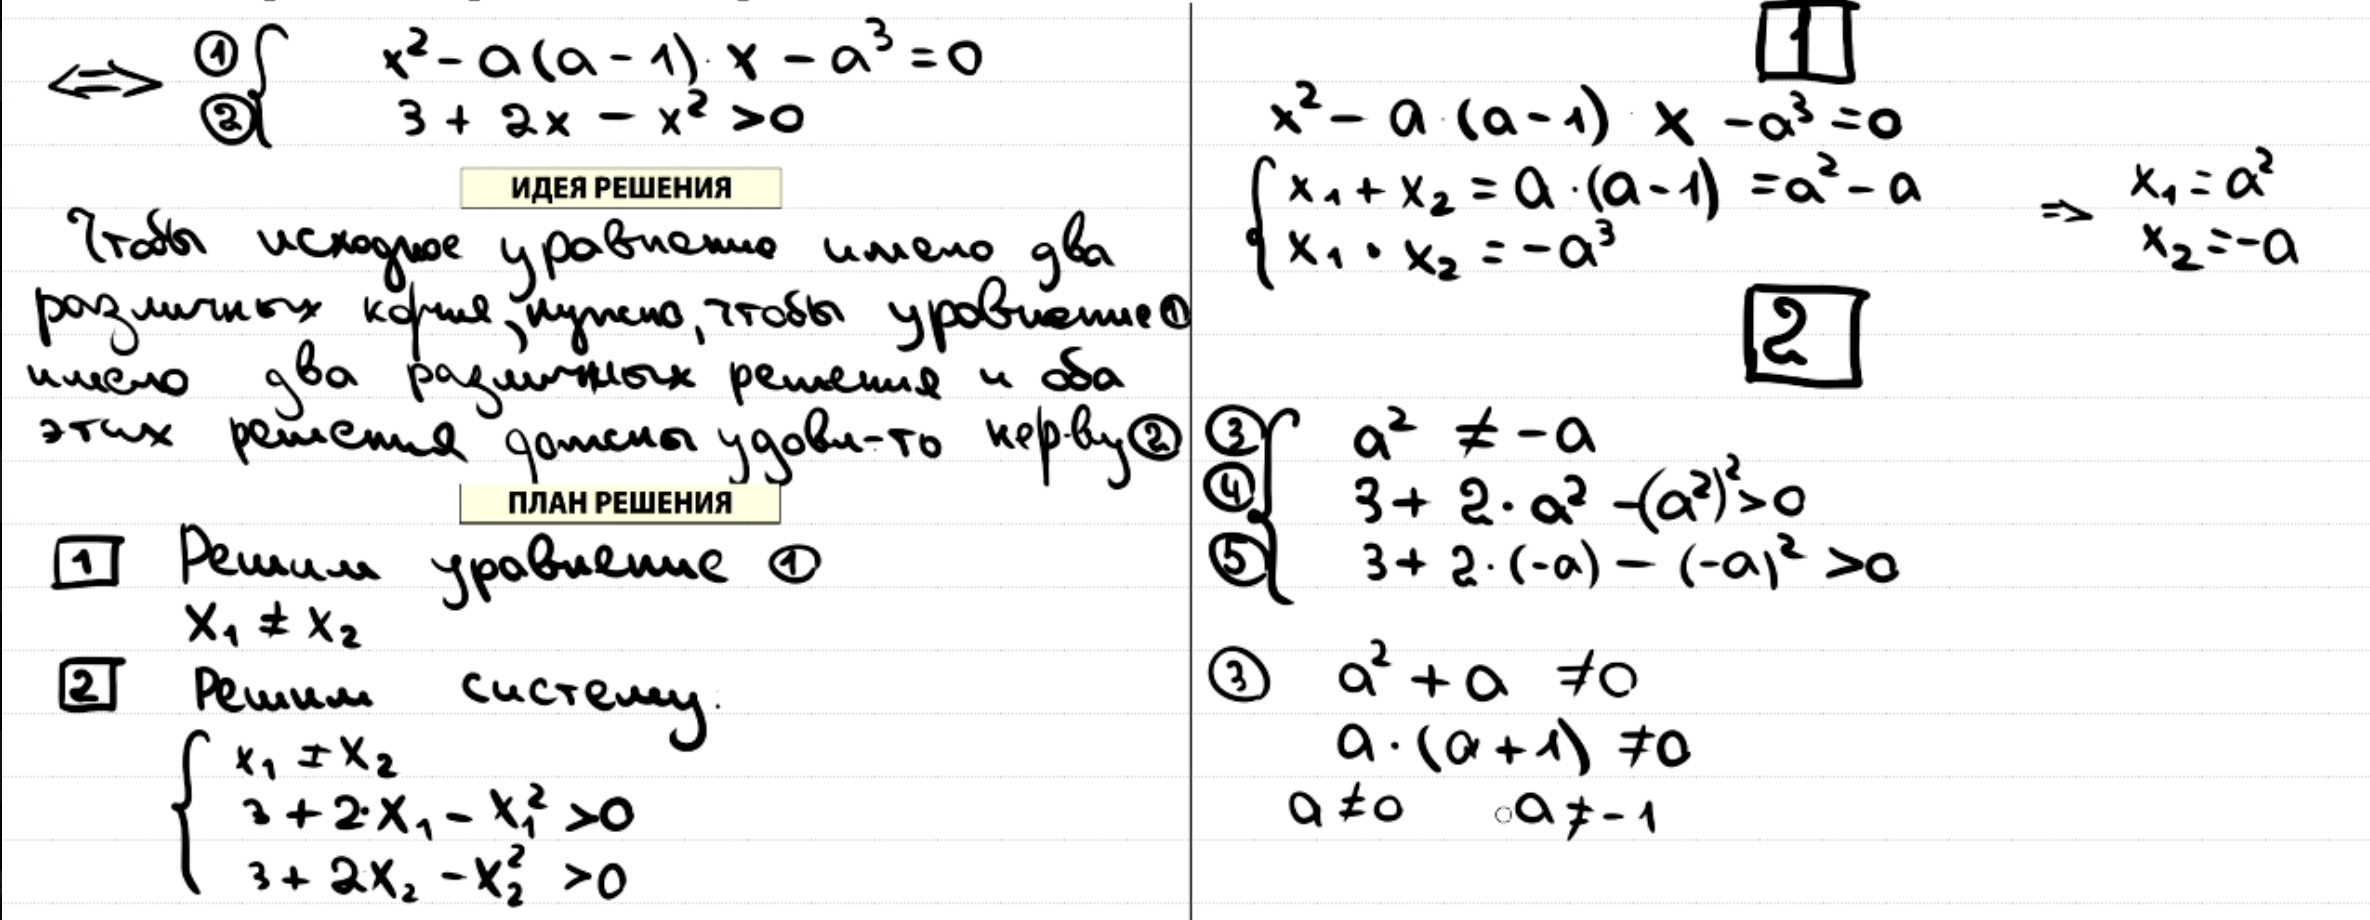 ⟺ ① { x² - a(a - 1) · x - a³ = 0
② 3 + 2x - x² > 0
ИДЕЯ РЕШЕНИЯ
Чтобы исходное уравнение имело два
различных корня, нужно, чтобы уравнение ①
имело два различных решения и оба
этих решения должны удовл-ть нер-ву ②
ПЛАН РЕШЕНИЯ
1 Решим уравнение ①
x₁ ≠ x₂
2 Решим систему:
{ x₁ ≠ x₂
3 + 2·x₁ - x₁² > 0
3 + 2x₂ - x₂² > 0
1
x² - a · (a - 1) · x - a³ = 0
{ x₁ + x₂ = a · (a - 1) = a² - a
x₁ · x₂ = -a³
⇒ x₁ = a²
x₂ = -a
2
③ { a² ≠ -a
④ 3 + 2 · a² - (a²)² > 0
⑤ 3 + 2 · (-a) - (-a)² > 0
③ a² + a ≠ 0
a · (a + 1) ≠ 0
a ≠ 0 a ≠ -1